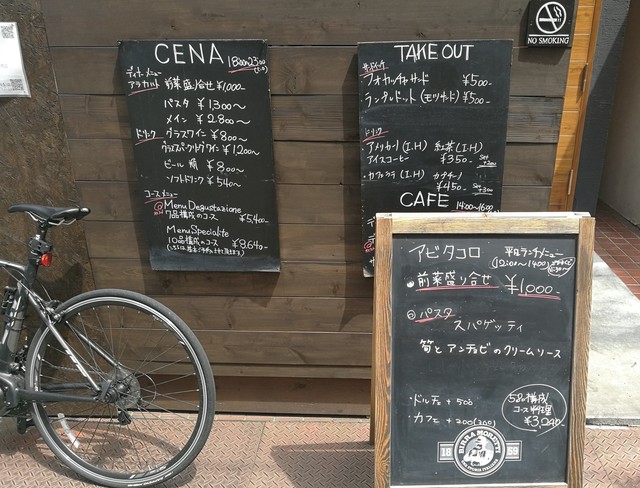 CENA 18:00~23:00
ディナーメニュー
アラカルト 前菜盛り合せ ¥1,000~
パスタ ¥1,300~
メイン ¥2,800~
ドリンク グラスワイン ¥800~
グラススパークリングワイン ¥1,200~
ビール 瓶 ¥800~
ソフトドリンク ¥540~
コースメニュー
Menu Degustazione
7品構成のコース ¥5,400-
Menu Specialite
10品構成のコース ¥8,640-
TAKE OUT
フォカッチャサンド ¥500-
・ランプレドット(モツサンド) ¥500-
ドリンク
・アメリカーノ(I.H) 紅茶(I.H)
アイスコーヒー ¥350- Set +200
・カフェラテ(I.H) カプチーノ
¥450- Set +300
CAFE 14:00~16:00
NO SMOKING
アビタコロ 平日ランチメニュー
(12:00~14:00)
前菜盛り合せ ¥1,000-
パスタ
スパゲッティ
筍とアンチョビのクリームソース
・ドルチェ + 500
・カフェ + 200(300)
5品構成
コース料理
¥3,240-
BIRRA MORETTI
18 59